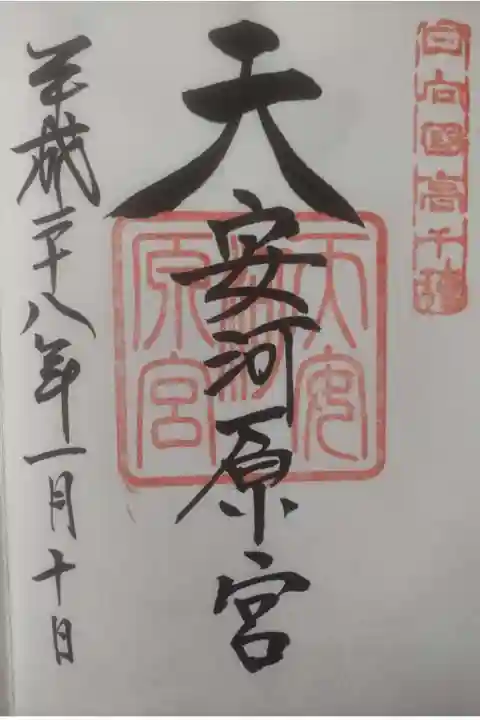 日向国高千穂
天安河原宮
天安河原宮
平成二十八年一月十日